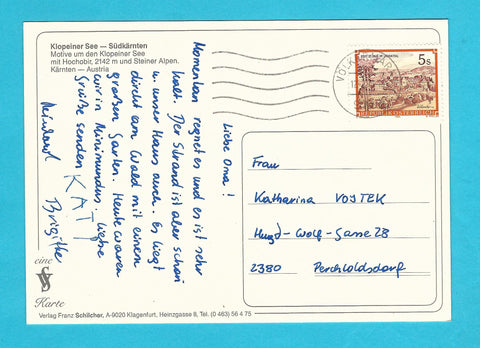 Klopeiner See — Südkärnten
Motive um den Klopeiner See
mit Hochobir, 2142 m und Steiner Alpen.
Kärnten — Austria
Liebe Oma!
Momentan regnet es und es ist sehr
kalt. Der Strand ist aber schön
u. unser Haus auch. Es liegt
direkt am Wald mit einem
großen Garten. Heute waren
wir in Minimundus. Liebe
Grüße senden
KATJ
Brigitte
5s
REPUBLIK ÖSTERREICH
Frau
Katharina VOJTEK
Hugo-Wolf-Gasse 28
2380 Perchtoldsdorf
eine
Karte
Verlag Franz Schilcher, A-9020 Klagenfurt, Heinzgasse 8, Tel. (0 463) 56 4 75